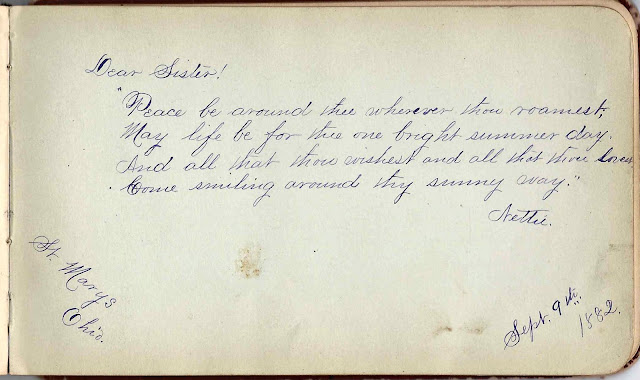 Dear Sister!
"Peace be around thee wherever thou roamest,
May life be for thee one bright summer day.
And all that thou wishest and all that thou lovest
Come smiling around thy sunny way."
Nettie.
St. Marys
Ohio.
Sept. 9th.
1882.